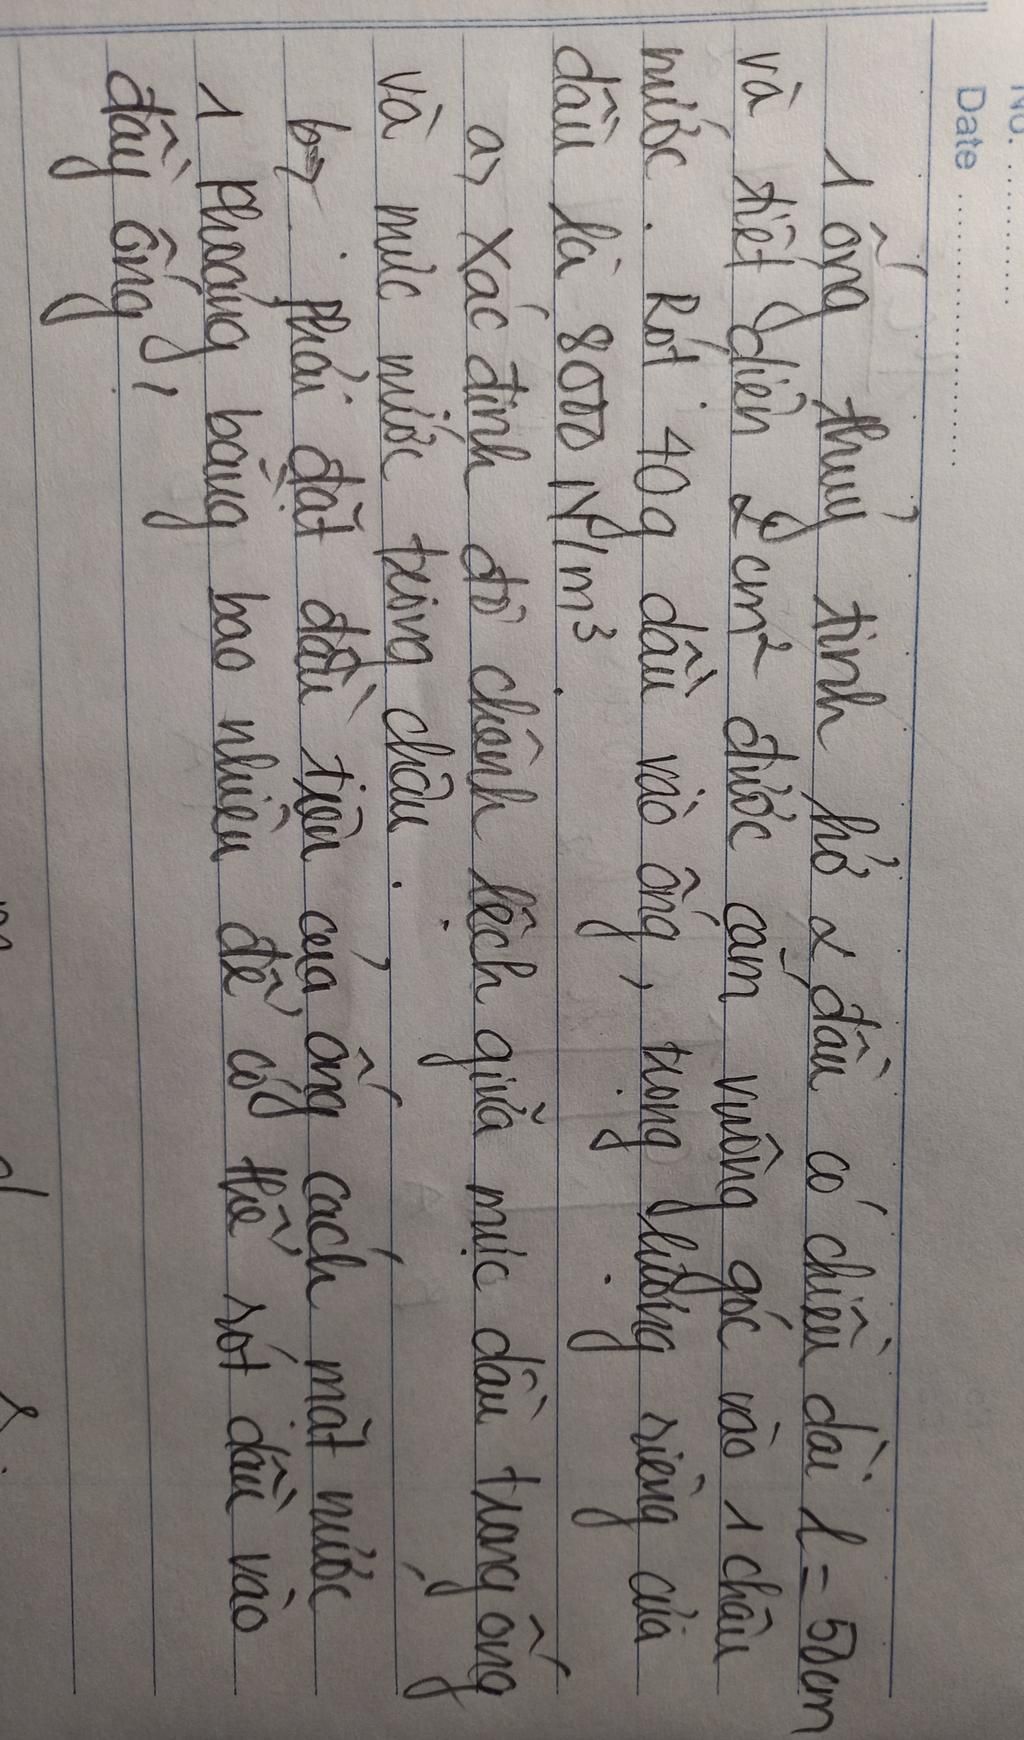 No. ............
Date ........................
1 ống thuỷ tinh hở 2 đầu có chiều dài l = 50cm
và tiết diện 2 cm² được cắm vuông góc vào 1 chậu
nước. Rót 40g dầu vào ống, trọng lượng riêng của
dầu là 8000 N/m³.
a> Xác định độ chênh lệch giữa mực dầu trong ống
và mức nước trong chậu.
b> Phải đặt đầu trên của ống cách mặt nước
1 khoảng bằng bao nhiêu để có thể rót dầu vào
đầy ống!